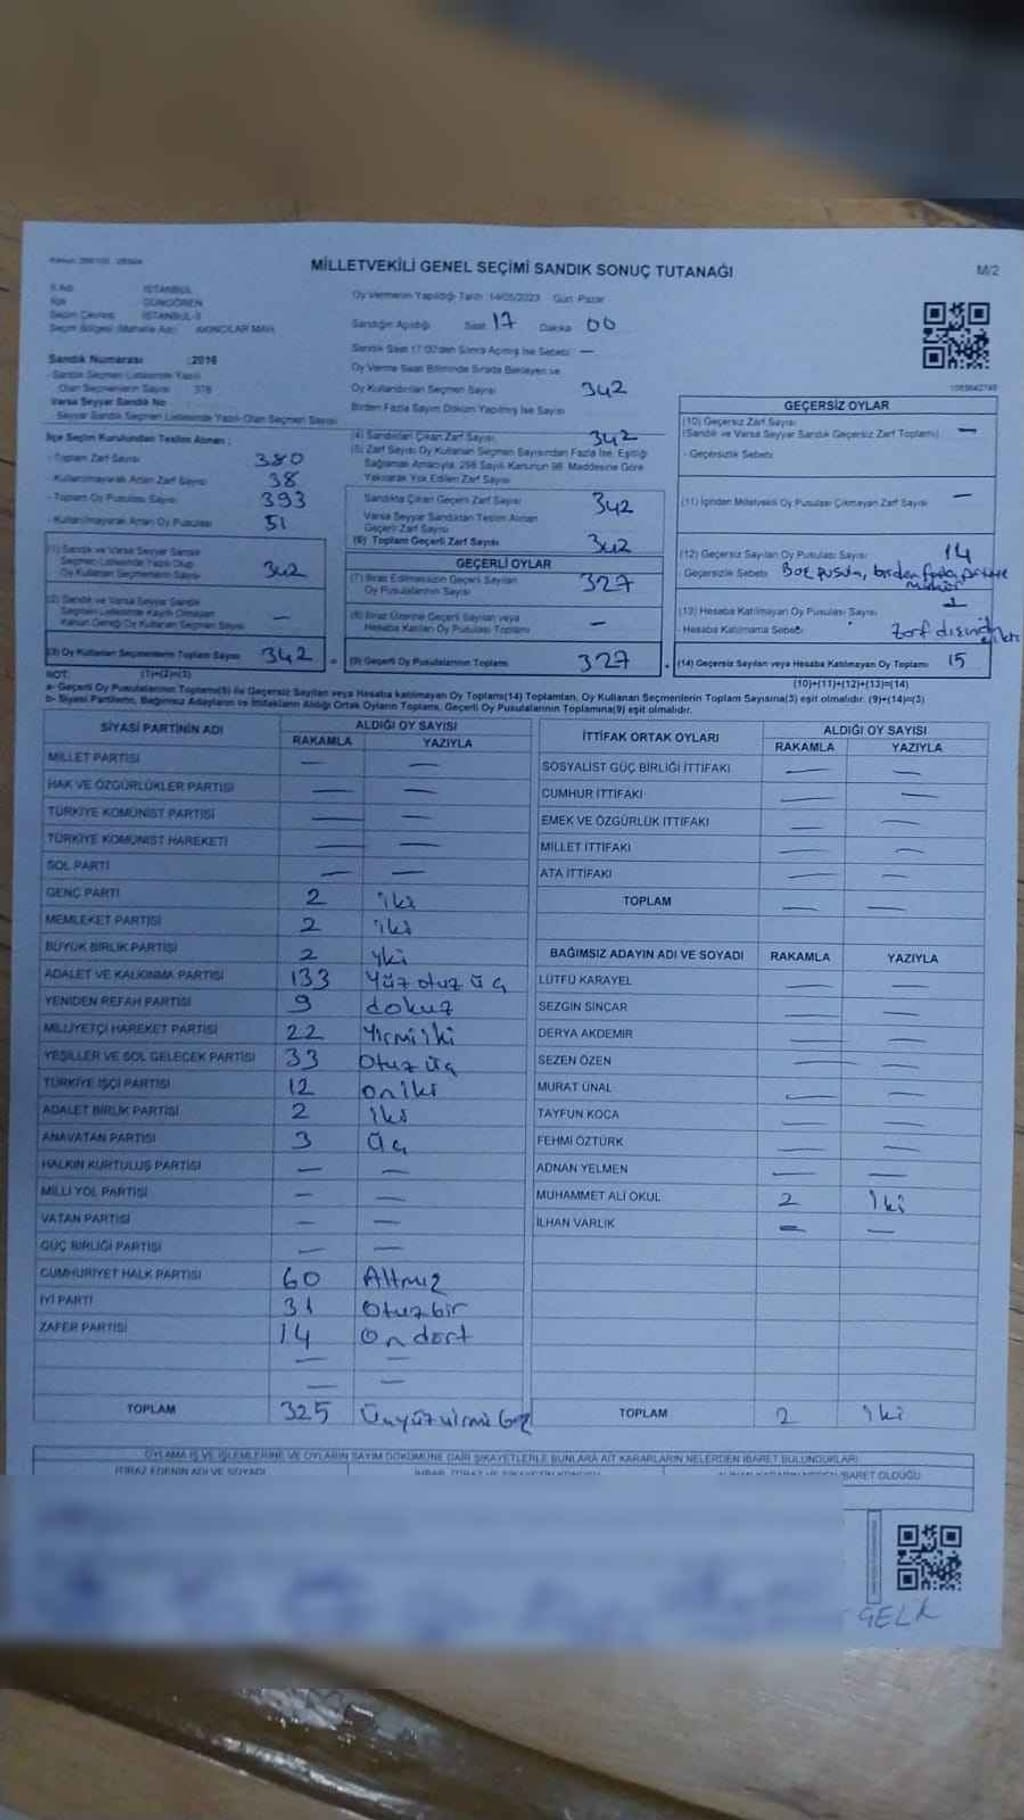 MİLLETVEKİLİ GENEL SEÇİMİ SANDIK SONUÇ TUTANAĞI
M/2
İli Adı : İSTANBUL
İlçe : GÜNGÖREN
Seçim Çevresi : İSTANBUL-3
Seçim Bölgesi (Mahalle Adı) : AKINCILAR MAH.
Sandık Numarası : 2016
Sandık Seçmen Listesinde Yazılı
Olan Seçmenlerin Sayısı : 378
Varsa Seyyar Sandık No
Seyyar Sandık Seçmen Listesinde Yazılı Olan Seçmen Sayısı
Oy Vermenin Yapıldığı Tarih :14/05/2023 Gün: Pazar
Sandığın Açıldığı Saat 17 Dakika 00
Sandık Saat 17:00'den Sonra Açılmış İse Sebebi: —
Oy Verme Saati Bitiminde Sırada Bekleyen ve
Oy Kullandırılan Seçmen Sayısı 342
Birden Fazla Sayım Döküm Yapılmış İse Sayısı
İlçe Seçim Kurulundan Teslim Alınan :
- Toplam Zarf Sayısı 380
- Kullanılmayarak Artan Zarf Sayısı 38
- Toplam Oy Pusulası Sayısı 393
- Kullanılmayarak Artan Oy Pusulası 51
(1) Sandık ve Varsa Seyyar Sandık
Seçmen Listesinde Yazılı Olup
Oy Kullanan Seçmenlerin Sayısı 342
(2) Sandık ve Varsa Seyyar Sandık
Seçmen Listesinde Kayıtlı Olmayan
Kanun Gereği Oy Kullanan Seçmen Sayısı —
(3) Oy Kullanan Seçmenlerin Toplam Sayısı 342
(1)+(2)=(3)
(4) Sandıktan Çıkan Zarf Sayısı 342
(5) Zarf Sayısı Oy Kullanan Seçmen Sayısından Fazla İse, Eşitliği
Sağlamak Amacıyla, 298 Sayılı Kanunun 98. Maddesine Göre
Yakılarak Yok Edilen Zarf Sayısı
Sandıkta Çıkan Geçerli Zarf Sayısı 342
Varsa Seyyar Sandıktan Teslim Alınan
Geçerli Zarf Sayısı
(6) Toplam Geçerli Zarf Sayısı 342
GEÇERLİ OYLAR
(7) İtiraz Edilmeksizin Geçerli Sayılan
Oy Pusulalarının Sayısı 327
(8) İtiraz Üzerine Geçerli Sayılan veya
Hesaba Katılan Oy Pusulası Toplamı —
(9) Geçerli Oy Pusulalarının Toplamı 327
GEÇERSİZ OYLAR
(10) Geçersiz Zarf Sayısı
(Sandık ve Varsa Seyyar Sandık Geçersiz Zarf Toplamı) —
- Geçersizlik Sebebi
(11) İçinden Milletvekili Oy Pusulası Çıkmayan Zarf Sayısı —
(12) Geçersiz Sayılan Oy Pusulası Sayısı 14
Geçersizlik Sebebi Boş pusula, birden fazla partiye mühür
(13) Hesaba Katılmayan Oy Pusulası Sayısı 1
- Hesaba Katılmama Sebebi Zarf dışında
(14) Geçersiz Sayılan veya Hesaba Katılmayan Oy Toplamı 15
(10)+(11)+(12)+(13)=(14)
NOT:
a- Geçerli Oy Pusulalarının Toplamı(9) ile Geçersiz Sayılan veya Hesaba katılmayan Oy Toplamı(14) Toplamları, Oy Kullanan Seçmenlerin Toplam Sayısına(3) eşit olmalıdır. (9)+(14)=(3)
b- Siyasi Partilerin, Bağımsız Adayların ve İttifakların Aldığı Ortak Oyların Toplamı, Geçerli Oy Pusulalarının Toplamına(9) eşit olmalıdır.
SİYASİ PARTİNİN ADI ALDIĞI OY SAYISI
RAKAMLA YAZIYLA
MİLLET PARTİSİ — —
HAK VE ÖZGÜRLÜKLER PARTİSİ — —
TÜRKİYE KOMÜNİST PARTİSİ — —
TÜRKİYE KOMÜNİST HAREKETİ — —
SOL PARTİ — —
GENÇ PARTİ 2 iki
MEMLEKET PARTİSİ 2 iki
BÜYÜK BİRLİK PARTİSİ 2 iki
ADALET VE KALKINMA PARTİSİ 133 Yüz otuz üç
YENİDEN REFAH PARTİSİ 9 dokuz
MİLLİYETÇİ HAREKET PARTİSİ 22 Yirmi iki
YEŞİLLER VE SOL GELECEK PARTİSİ 33 Otuz üç
TÜRKİYE İŞÇİ PARTİSİ 12 on iki
ADALET BİRLİK PARTİSİ 2 iki
ANAVATAN PARTİSİ 3 Üç
HALKIN KURTULUŞ PARTİSİ — —
MİLLİ YOL PARTİSİ — —
VATAN PARTİSİ — —
GÜÇ BİRLİĞİ PARTİSİ — —
CUMHURİYET HALK PARTİSİ 60 Altmız
İYİ PARTİ 31 Otuz bir
ZAFER PARTİSİ 14 On dört
— —
— —
TOPLAM 325 Üçyüzyirmi beş
İTTİFAK ORTAK OYLARI ALDIĞI OY SAYISI
RAKAMLA YAZIYLA
SOSYALİST GÜÇ BİRLİĞİ İTTİFAKI — —
CUMHUR İTTİFAKI — —
EMEK VE ÖZGÜRLÜK İTTİFAKI — —
MİLLET İTTİFAKI — —
ATA İTTİFAKI — —
TOPLAM — —
BAĞIMSIZ ADAYIN ADI VE SOYADI RAKAMLA YAZIYLA
LÜTFÜ KARAYEL — —
SEZGİN SİNCAR — —
DERYA AKDEMİR — —
SEZEN ÖZEN — —
MURAT ÜNAL — —
TAYFUN KOCA — —
FEHMİ ÖZTÜRK — —
ADNAN YELMEN — —
MUHAMMET ALİ OKUL 2 iki
İLHAN VARLIK — —
TOPLAM 2 iki
OYLAMA İŞ VE İŞLEMLERİNE VE OYLARIN SAYIM DÖKÜMÜNE DAİR ŞİKAYETLERLE BUNLARA AİT KARARLARIN NELERDEN İBARET BULUNDUKLARI
İTİRAZ EDENİN ADI VE SOYADI
İBARET OLDUĞU